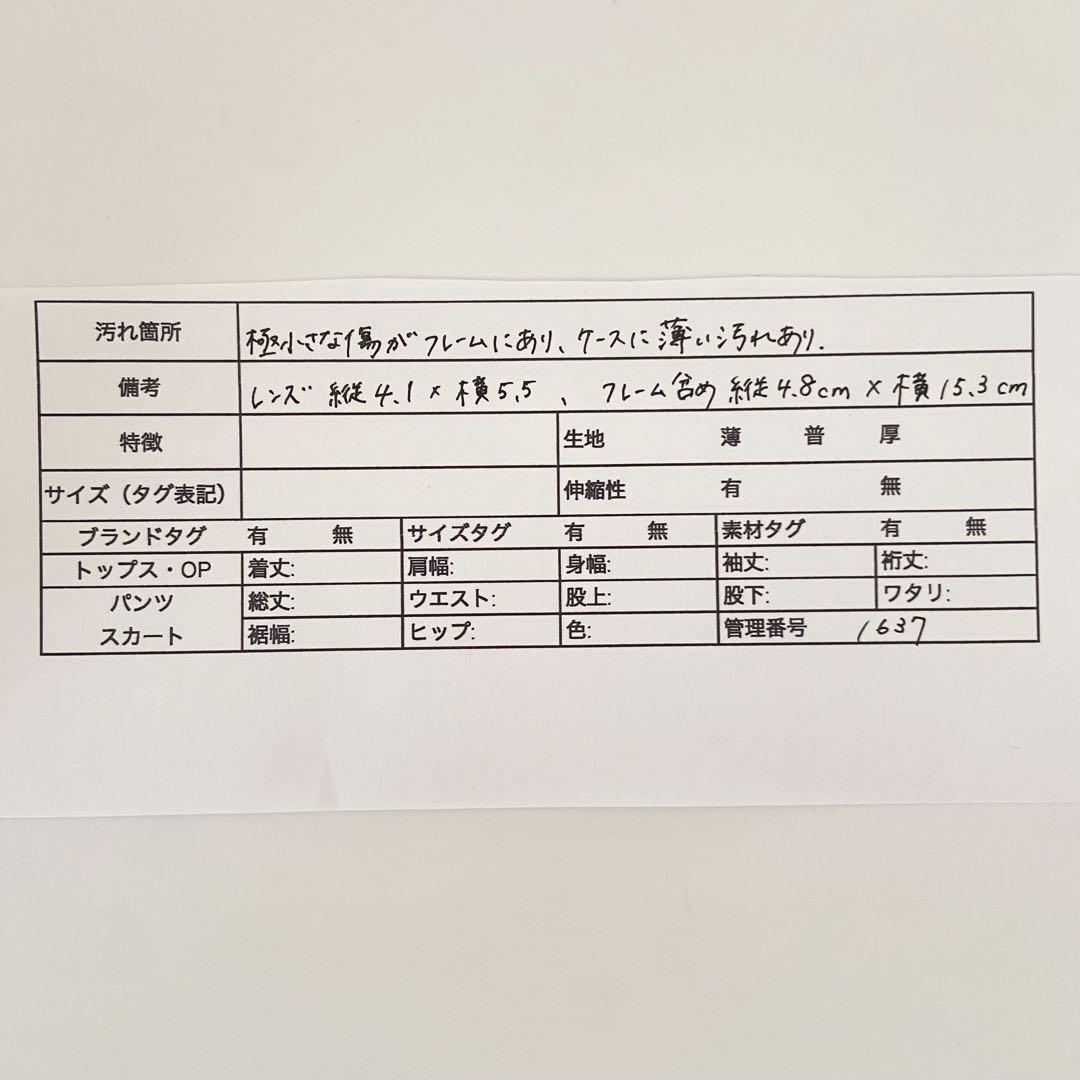 汚れ箇所 極小さな傷がフレームにあり、ケースに薄い汚れあり.
備考 レンズ 縦4.1×横5.5 、 フレーム含め 縦4.8cm×横15.3cm
特徴 生地 薄 普 厚
サイズ（タグ表記） 伸縮性 有 無
ブランドタグ 有 無 サイズタグ 有 無 素材タグ 有 無
トップス・OP 着丈: 肩幅: 身幅: 袖丈: 裄丈:
パンツ 総丈: ウエスト: 股上: 股下: ワタリ:
スカート 裾幅: ヒップ: 色: 管理番号 1637